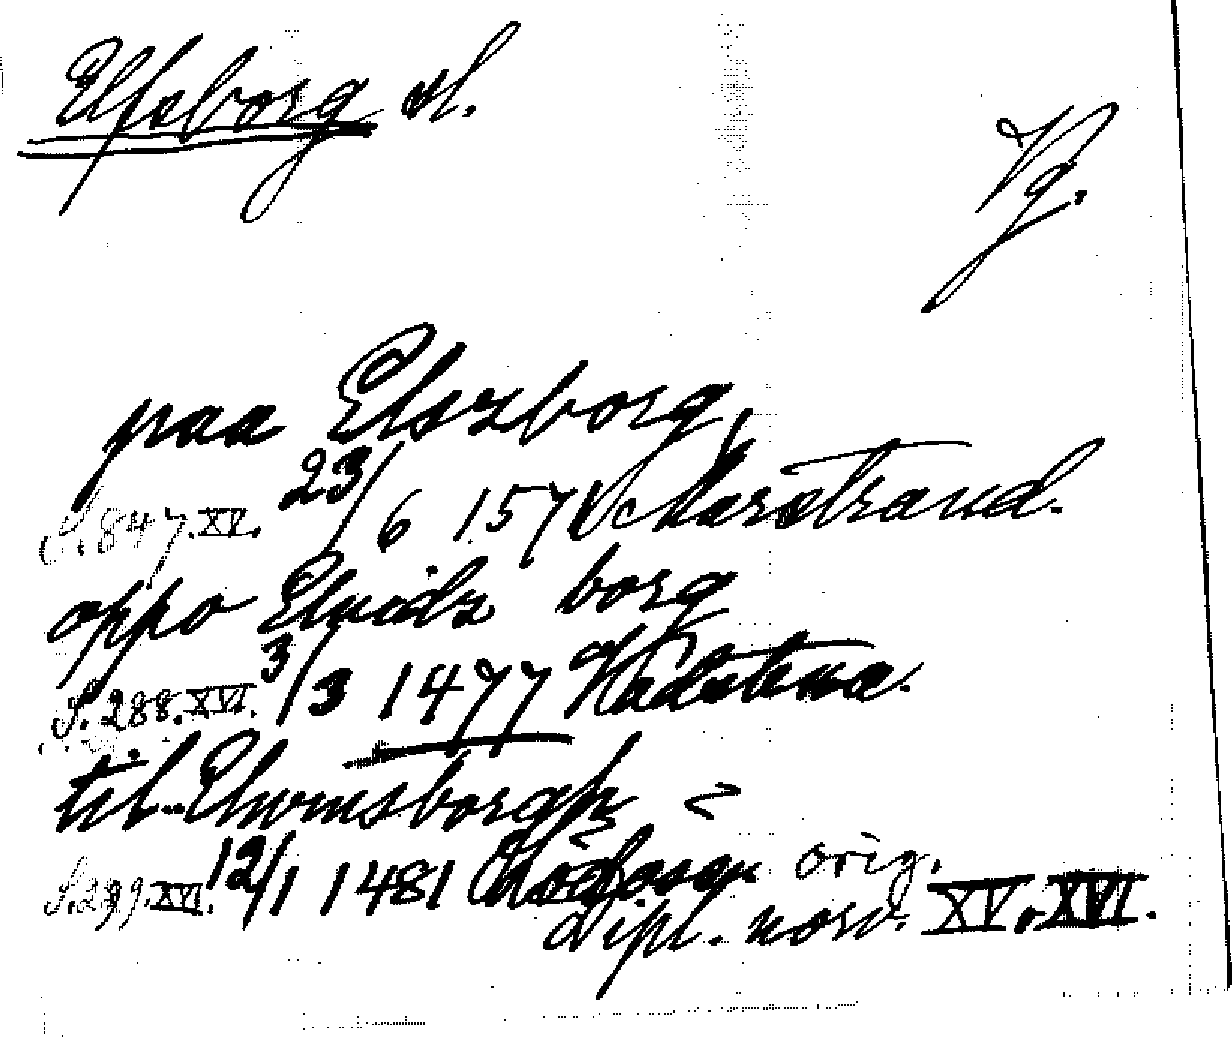 Elfsborg sl.
Vg.
paa Elszborg,
S. 847. XV. 23/6 1571 Marstrand.
oppo Elwidz borg
S. 288. XVI. 3/3 1477 Vadstena.
til Elwmsborgh
S. 299. XVI. 12/1 1481 orig.
Dipl. norv. XV. XVI.